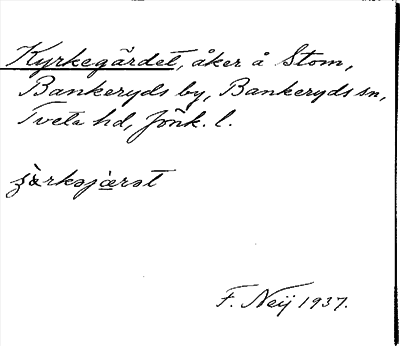 Kyrkegärdet, åker å Stom,
Bankeryds by, Bankeryds sn,
Tveta hd, Jönk. l.
F. Neij 1937.